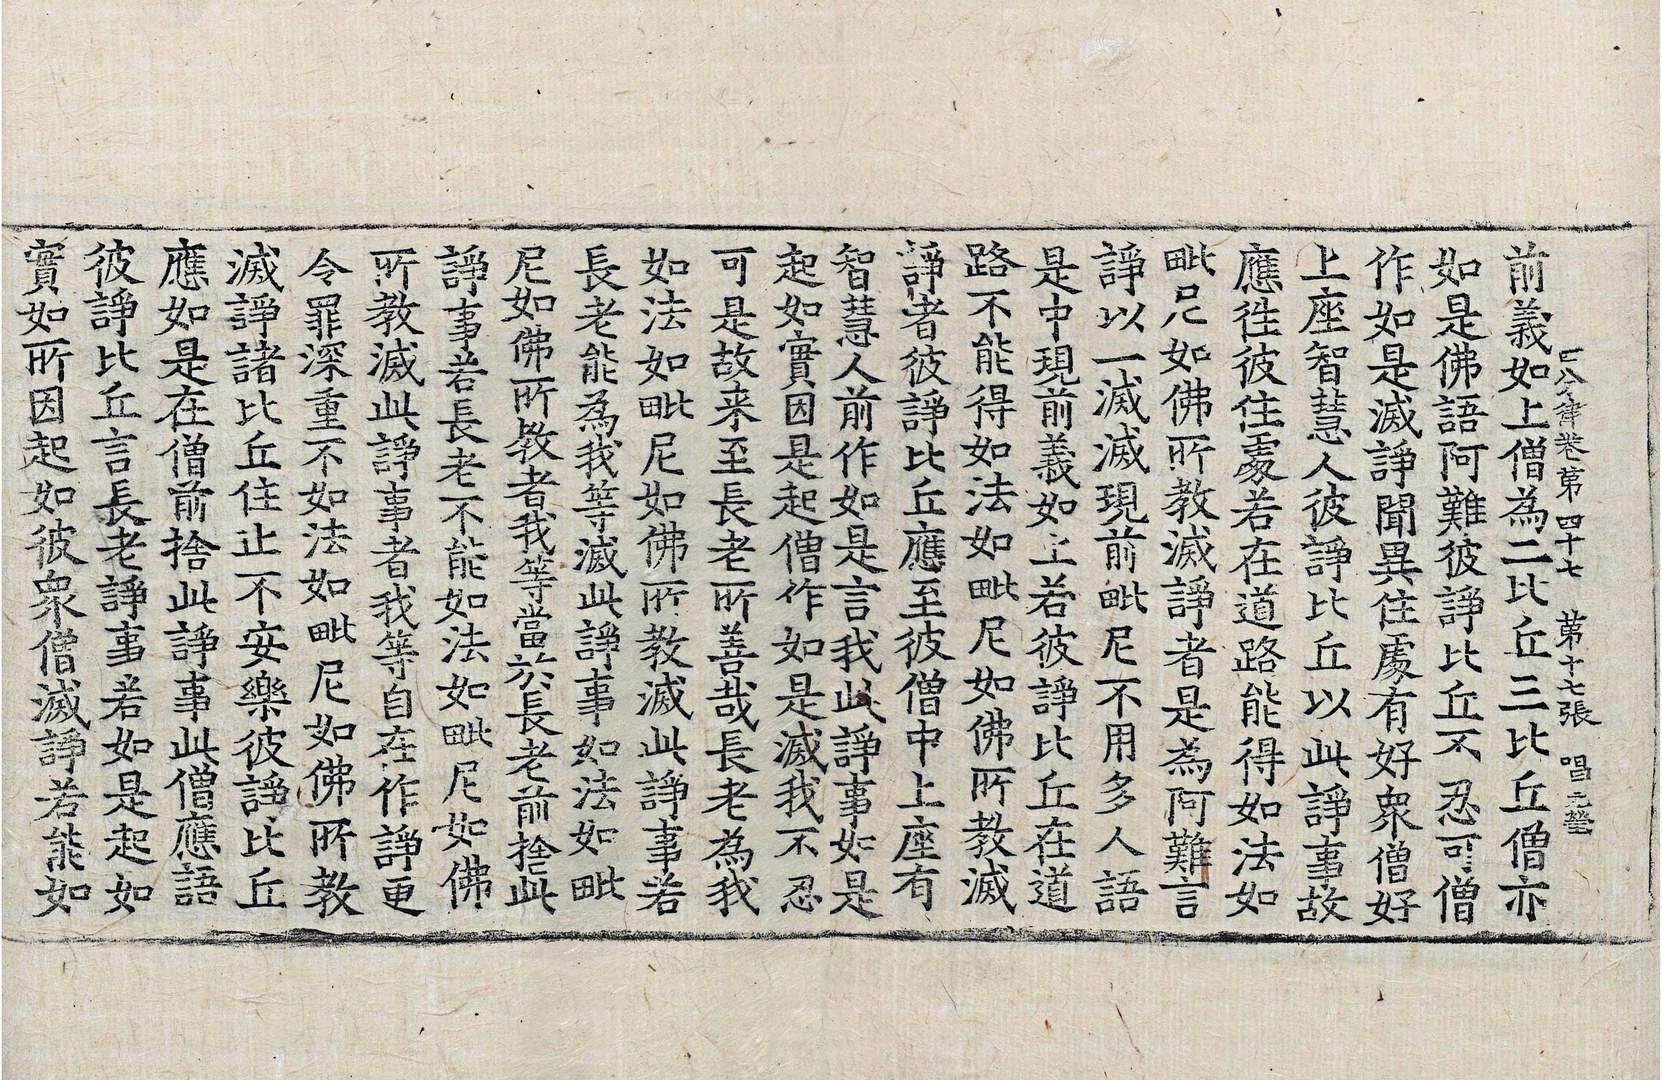 四分律卷第四十七 第十七張 唱
前義如上僧為二比丘三比丘僧亦
如是佛語阿難彼諍比丘不忍可僧
作如是滅諍聞異住處有好衆僧好
上座智慧人彼諍比丘以此諍事故
應徃彼住處若在道路能得如法如
毗尼如佛所教滅諍者是為阿難言
諍以一滅滅現前毗尼不用多人語
是中現前義如上若彼諍比丘在道
路不能得如法如毗尼如佛所教滅
諍者彼諍比丘應至彼僧中上座有
智慧人前作如是言我此諍事如是
起如實因是起僧作如是滅我不忍
可是故来至長老所善哉長老為我
如法如毗尼如佛所教滅此諍事若
長老能為我等滅此諍事如法如毗
尼如佛所教者我等當於長老前捨此
諍事若長老不能如法如毗尼如佛
所教滅此諍事者我等自在作諍更
令罪深重不如法如毗尼如佛所教
滅諍諸比丘住止不安樂彼諍比丘
應如是在僧前捨此諍事此僧應語
彼諍比丘言長老諍事若如是起如
實如所因起如彼衆僧滅諍若能如